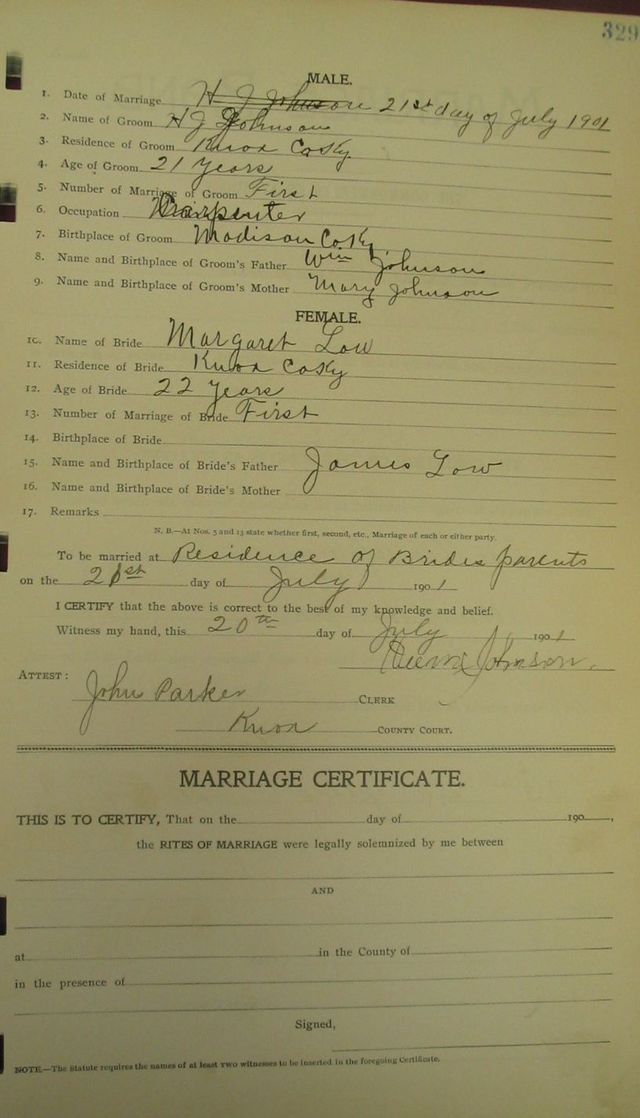 329
MALE.
1. Date of Marriage H J Johnson 21st day of July 1901
2. Name of Groom H J Johnson
3. Residence of Groom Knox Co Ky
4. Age of Groom 21 Years
5. Number of Marriage of Groom First
6. Occupation Carpenter
7. Birthplace of Groom Madison Co Ky
8. Name and Birthplace of Groom's Father Wm Johnson
9. Name and Birthplace of Groom's Mother Mary Johnson
FEMALE.
10. Name of Bride Margaret Low
11. Residence of Bride Knox Co Ky
12. Age of Bride 22 Years
13. Number of Marriage of Bride First
14. Birthplace of Bride
15. Name and Birthplace of Bride's Father James Low
16. Name and Birthplace of Bride's Mother
17. Remarks
N. B.—At Nos. 5 and 13 state whether first, second, etc., Marriage of each or either party.
To be married at Residence of Brides parents
on the 21st day of July 1901
I CERTIFY that the above is correct to the best of my knowledge and belief.
Witness my hand, this 20th day of July 1901
Johnson.
ATTEST:
John Parker CLERK
Knox COUNTY COURT.
MARRIAGE CERTIFICATE.
THIS IS TO CERTIFY, That on the day of 190 ,
the RITES OF MARRIAGE were legally solemnized by me between
AND
at in the County of
in the presence of
Signed,
NOTE.—The Statute requires the names of at least two witnesses to be inserted in the foregoing Certificate.